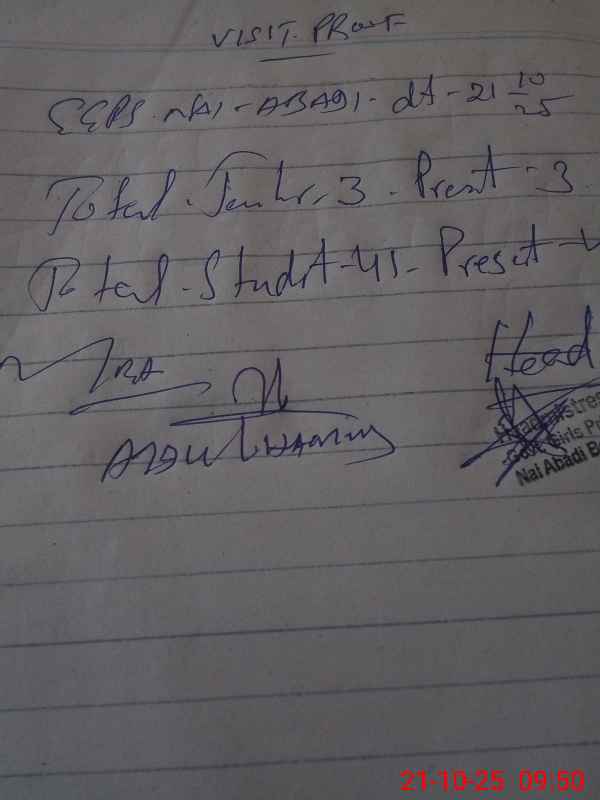 VISIT. PROOF
GGPS. NAI - ABADI - dt - 21 10/25
Total - Teachr, 3 - Present - 3
Total - Studnt - 41 - Present -
Head
ABDUL
Headmistress
Govt. Girls
Nai Abadi
21-10-25 09:50